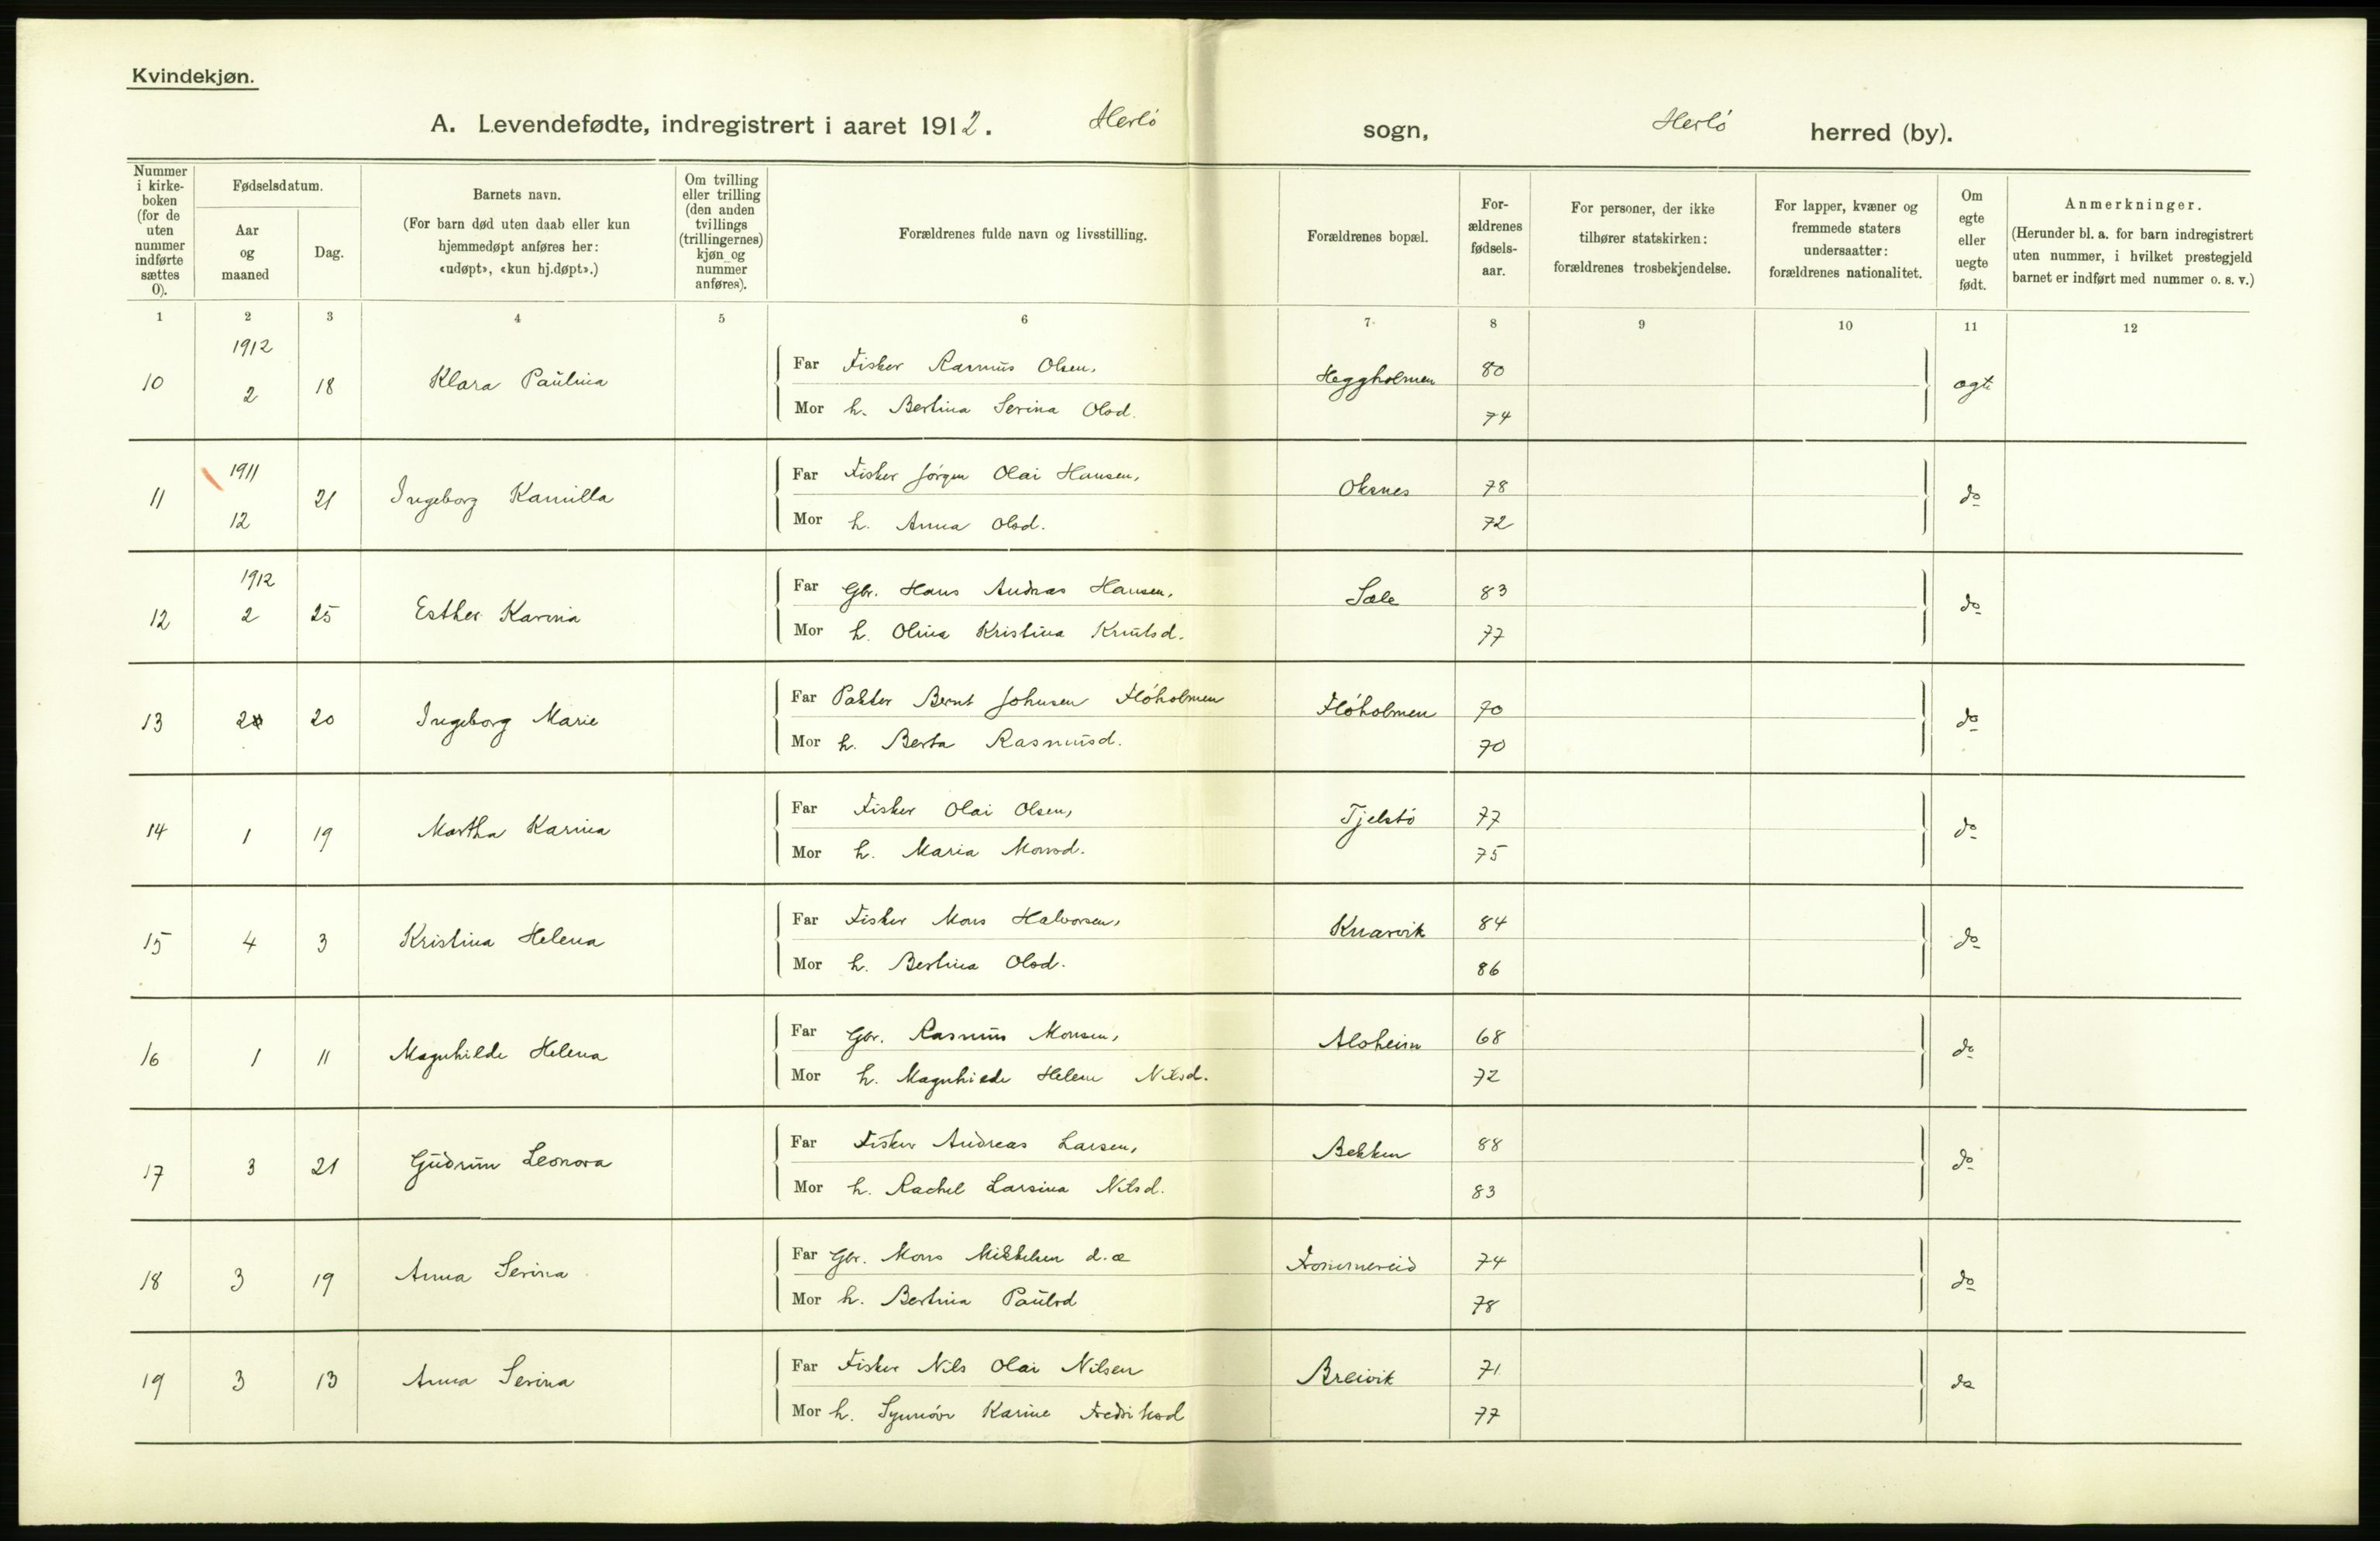 Kvindekjøn.
A. Levendefødte, indregistrert i aaret 1912. Herlö sogn, Herlö herred (by).
Nummer i kirke-boken (for de uten nummer indførte sættes 0).
Fødselsdatum.
Aar og maaned
Dag.
Barnets navn.
(For barn død uten daab eller kun hjemmedøpt anføres her: «udøpt», «kun hj.døpt».)
Om tvilling eller trilling (den anden tvillings (trillingernes) kjøn og nummer anføres).
Forældrenes fulde navn og livsstilling.
Forældrenes bopæl.
For-ældrenes fødsels-aar.
For personer, der ikke tilhører statskirken: forældrenes trosbekjendelse.
For lapper, kvæner og fremmede staters undersaatter: forældrenes nationalitet.
Om egte eller uegte født.
Anmerkninger.
(Herunder bl. a. for barn indregistrert uten nummer, i hvilket prestegjeld barnet er indført med nummer o. s. v.)
1 2 3 4 5 6 7 8 9 10 11 12
10 1912 2 18 Klara Paulina Far Fisker Rasmus Olsen, Heggholmen 80 ægte
Mor h. Bertina Serina Olsd. 74
11 1911 12 21 Ingeborg Kamilla Far Fisker Jörgen Olai Hansen, Oksnes 78 do
Mor h. Anna Olsd. 72
12 1912 2 25 Esther Karina Far Gbr. Hans Andreas Hansen, Sæle 83 do
Mor h. Olina Kristina Knutsd. 77
13 2 20 Ingeborg Marie Far Pakter Bernt Johnsen Flöholmen Flöholmen 70 do
Mor h. Berta Rasmusd. 70
14 1 19 Martha Karina Far Fisker Olai Olsen, Tjelstö 77 do
Mor h. Maria Monsd. 75
15 4 3 Kristina Helena Far Fisker Mons Halvorsen, Knarvik 84 do
Mor h. Bertina Olsd. 86
16 1 11 Magnhilde Helena Far Gbr. Rasmus Monsen, Alsheim 68 do
Mor h. Magnhilde Helene Nilsd. 72
17 3 21 Gudrun Leonora Far Fisker Andreas Larsen, Bakken 88 do
Mor h. Rachel Larsina Nilsd. 83
18 3 19 Anna Serina Far Gbr. Mons Mikkelsen d.æ Frommereid 74 do
Mor h. Bertina Paulsd 78
19 3 13 Anna Serina Far Fisker Nils Olai Nilsen Breivik 71 do
Mor h. Synnöve Karine Fredriksd 77